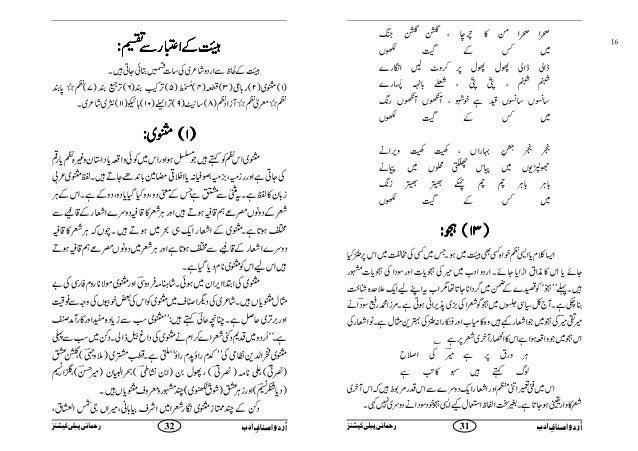 صحرا صحرا من کا چرچا ، گلشن گلشن جنگ
میں کس کے گیت لکھوں
ڈالی ڈالی پھول پھول پر کروٹ لیں انگارے
شبنم شبنم ، پتی پتی ، شعلے بانہہ پسارے
سانسوں سانسوں قید ہے خوشبو ، آنکھوں آنکھوں رنگ
میں کس کے گیت لکھوں
بنجر بنجر جشن بہاراں ، کھیت کھیت ویرانے
جھونپڑیوں میں پیاس چھلکتی محلوں میں پیمانے
باہر باہر چم چم چمکے بھیتر بھیتر زنگ
میں کس کے گیت لکھوں
(۱۳) ہجو:
ایسا کلام یا ایسی نظم خواہ کسی بھی ہیئت میں ہو۔ جس میں کسی کی مخالفت میں اس پر طنز کیا
جائے یا اس کا مذاق اڑایا جائے۔ اردو ادب میں میر کی ہجویات اور سودا کی ہجویات مشہور
ہیں۔ پہلے ”ہجو“ کو قصیدے کے ضمن میں گردانا جاتا تھا مگر اب یہ اپنے لیے ایک علاحدہ شناخت
بنا چکی ہے۔ آج کل سیاسی جلسوں میں ہجو گو شعرا کی بڑی پذیرائی ہوتی ہے۔ مرزا محمد رفیع سودا نے
میر تقی میر کی ہجو میں جو اشعار کہے ہیں وہ کامیاب اور فنکارانہ طنز کی بہترین مثال ہے۔ نو اشعار کی
اس ہجو میں جو واقعہ ہوا ہے اس کا انحصار آخری شعر پر ہے
ہر ورق پر ہے میر کی اصلاح
لوگ کہتے ہیں سہو کاتب ہے
اس میں فنی تعمیر اتنی منظم اور اشعار ایک دوسرے سے اس قدر مربوط ہیں کہ اس آخری
شعر کا وار یقینی ہو جاتا ہے۔ بغیر سخت الفاظ استعمال کیے ایسی ہجو خود سودا نے دوسری نہیں کہی۔
اُردو اصنافِ ادب 31 رحمانی پبلی کیشنز
16
ہیئت کے اعتبار سے تقسیم:
ہیئت کے لحاظ سے اردو شاعری کی سات قسمیں بتائی جاتی ہیں۔
(۱) مثنوی (۲) رباعی (۳) قطعہ (۴) مسمط (۵) ترکیب بند (۶) ترجیع بند (۷) نظم ☆ پابند
نظم ☆ معریٰ نظم ☆ آزاد نظم (۸) سانیٹ (۹) ترائیلے (۱۰) ہائیکو (۱۱) نثری شاعری۔
(۱) مثنوی:
مثنوی اس نظم کو کہتے ہیں جو مسلسل ہو اور اس میں کوئی واقعہ یا داستان وغیرہ نظم یا رقم
کی جاتی ہے اور رزمیہ، بزمیہ صوفیانہ یا اخلاقی مضامین باندھے جاتے ہیں۔ لفظ مثنوی عربی
زبان کا لفظ ہے۔ یہ مثنیٰ سے مشتق ہے جس کے معنی دو، دو کیا گیا یا دو، دو کے ہے۔ اس کے ہر
شعر کے دونوں مصرعے ہم قافیہ ہوتے ہیں اور ہر شعر کا قافیہ دوسرے اشعار کے قافیے سے
مختلف ہوتا ہے۔ مثنوی کے اشعار ایک ہی بحر میں ہوتے ہیں۔ چوں کہ ہر شعر کا قافیہ
دوسرے اشعار کے قافیے سے مختلف ہوتا ہے اور ہر شعر میں دونوں مصرعے ہم قافیہ ہوتے
ہیں اس لیے اس کو مثنوی کا نام دیا گیا ہے۔
مثنوی کی ابتدا ایران میں ہوئی۔ شاہنامہ فردوسی اور مثنوی مولانا روم فارسی کی بے
مثال مثنویاں ہیں۔ شاعری کی دیگر اصناف میں مثنوی کو اس کی بعض خوبیوں کی وجہ سے فوقیت
اور برتری حاصل ہے۔ چنانچہ حالی کہتے ہیں: ”مثنوی سب سے زیادہ مفید اور کارآمد صنف
ہے۔“ اُردو میں قدیم دکنی شعرا نے کہرام کے مثنوی کی داغ بیل ڈالی۔ دکن میں سب سے پہلی
مثنوی فخر الدین نظامی کی ”کدم راؤ پدم راؤ“ ملتی ہے۔ قطب مشتری (ملا وجہی) گلشن عشق
(نصرتی) علی نامہ (نصرتی) ، پھول بن (ابن نشاطی) سحر البیان (میر حسن) گلزار نسیم
(دیا شنکر نسیم) اور زہر عشق (شوق لکھنوی) چند مشہور و معروف مثنویاں ہیں۔
دکن کے چند ممتاز مثنوی نگار شعرا میں اشرف بیابانی، میراں جی شمس العشاق،
اُردو اصنافِ ادب 32 رحمانی پبلی کیشنز